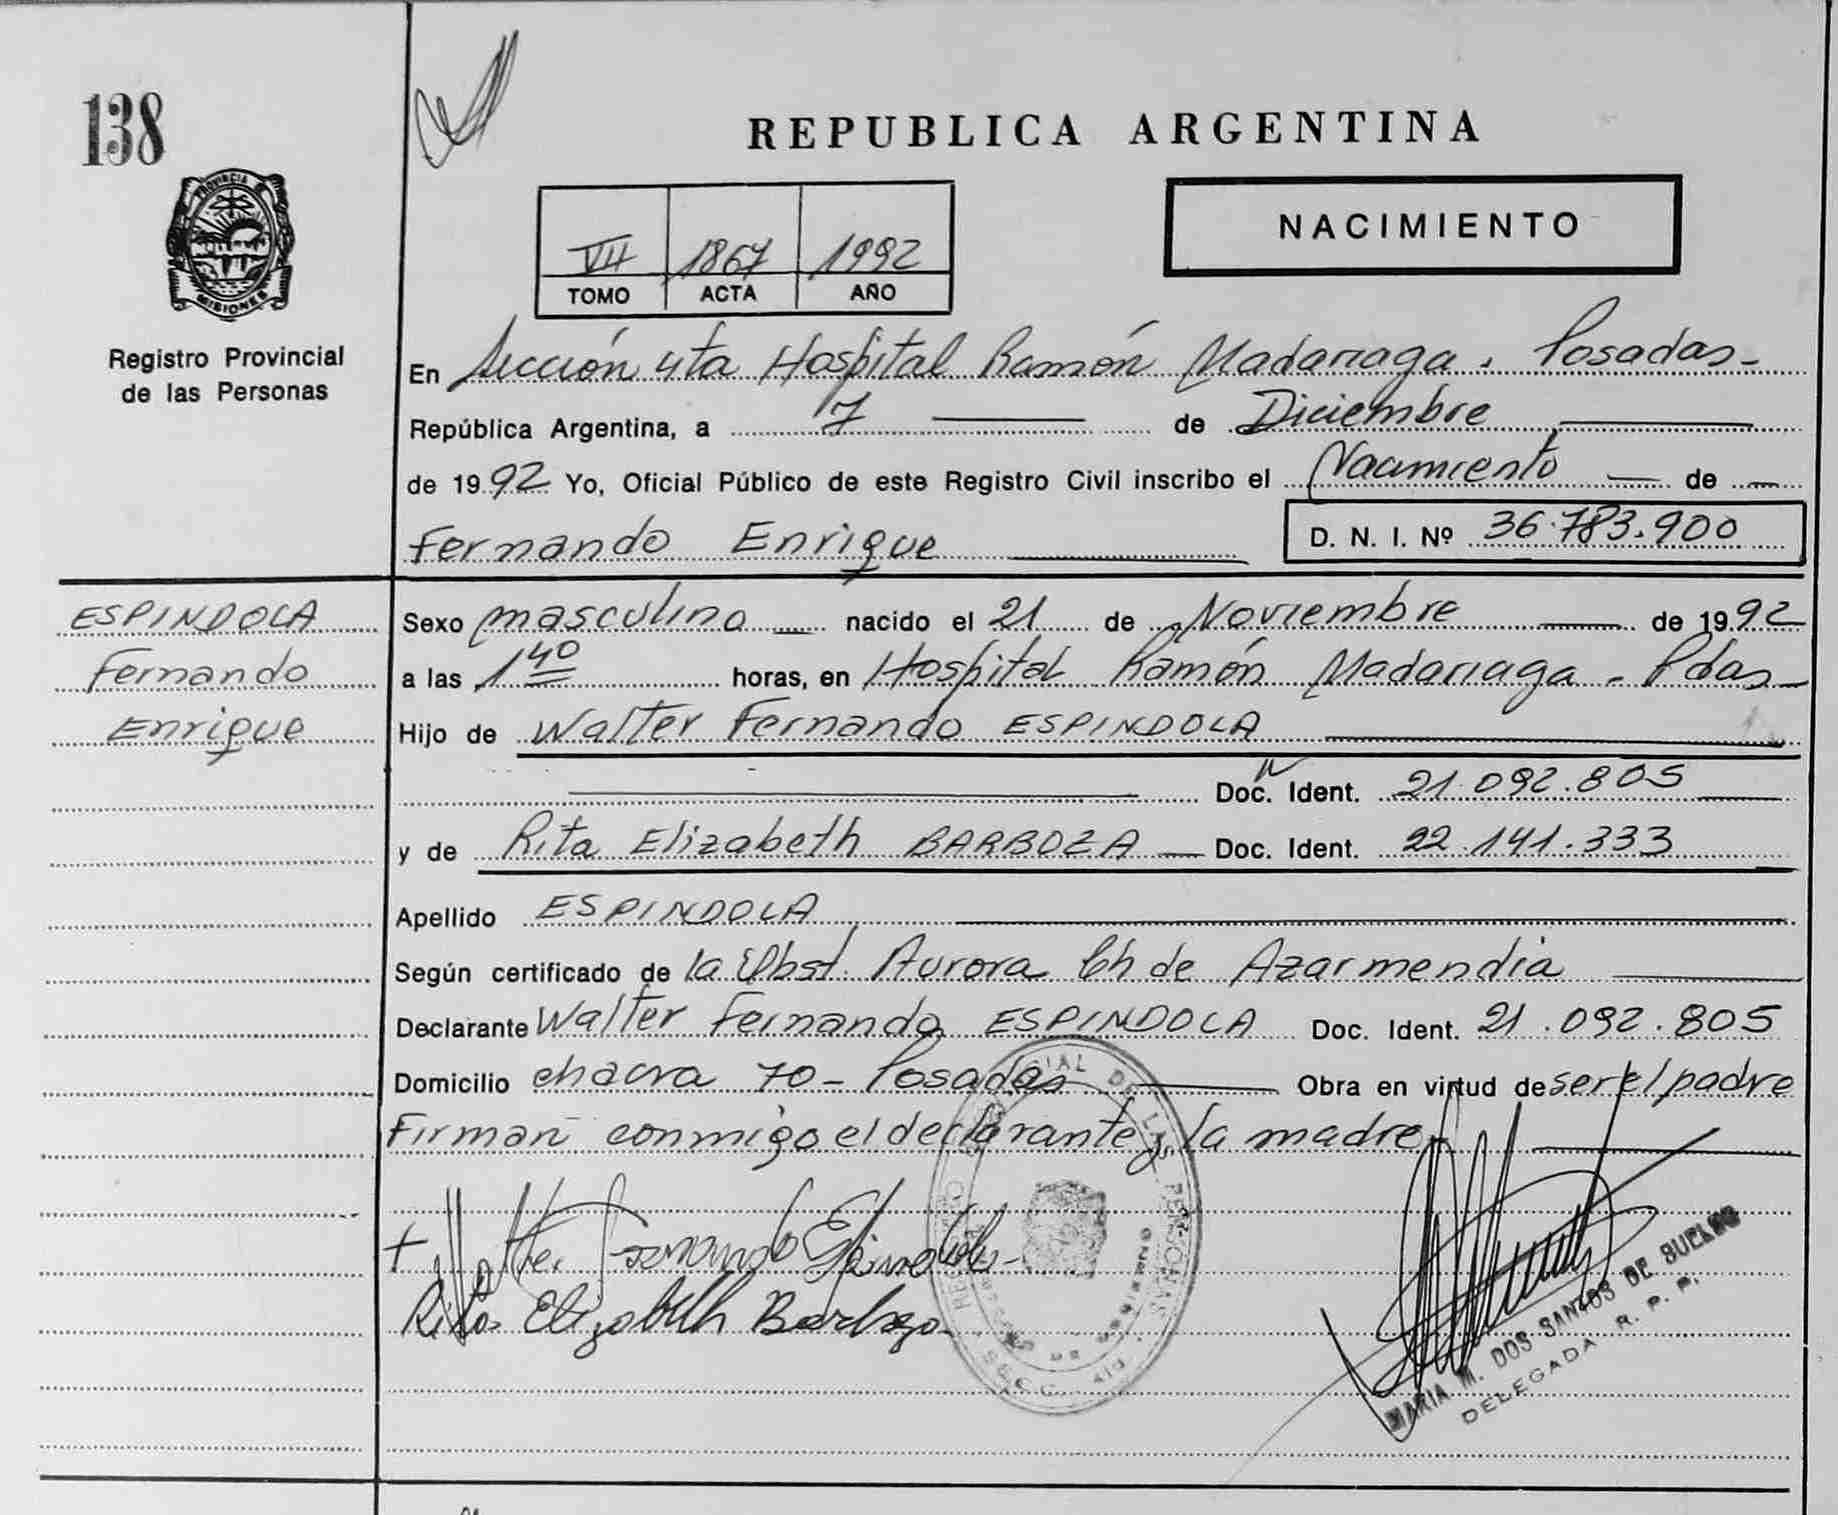 138
PROVINCIA DE
MISIONES
Registro Provincial
de las Personas
REPUBLICA ARGENTINA
VII 1867 1992
TOMO ACTA AÑO
NACIMIENTO
En Sección 4ta Hospital Ramón Madariaga. Posadas-
República Argentina, a 7 de Diciembre
de 1992 Yo, Oficial Público de este Registro Civil inscribo el Nacimiento de
Fernando Enrique D. N. I. Nº 36.783.900
ESPINDOLA
Fernando
Enrique
Sexo masculino nacido el 21 de Noviembre de 1992
a las 1 40 horas, en Hospital Ramón Madariaga - Pdas-
Hijo de Walter Fernando ESPINDOLA
Doc. Ident. 21.092.805
y de Rita Elizabeth BARBOZA Doc. Ident. 22.141.333
Apellido ESPINDOLA
Según certificado de la Obst. Aurora Ch de Azarmendia
Declarante Walter Fernando ESPINDOLA Doc. Ident. 21.092.805
Domicilio chacra 70 - Posadas Obra en virtud de ser el padre
Firman conmigo el declarante y la madre
Walter Fernando Espindola
Rita Elizabeth Barboza
DE LAS PERSONAS
MARIA M. DOS SANTOS DE SUELOS
DELEGADA R. P. P.